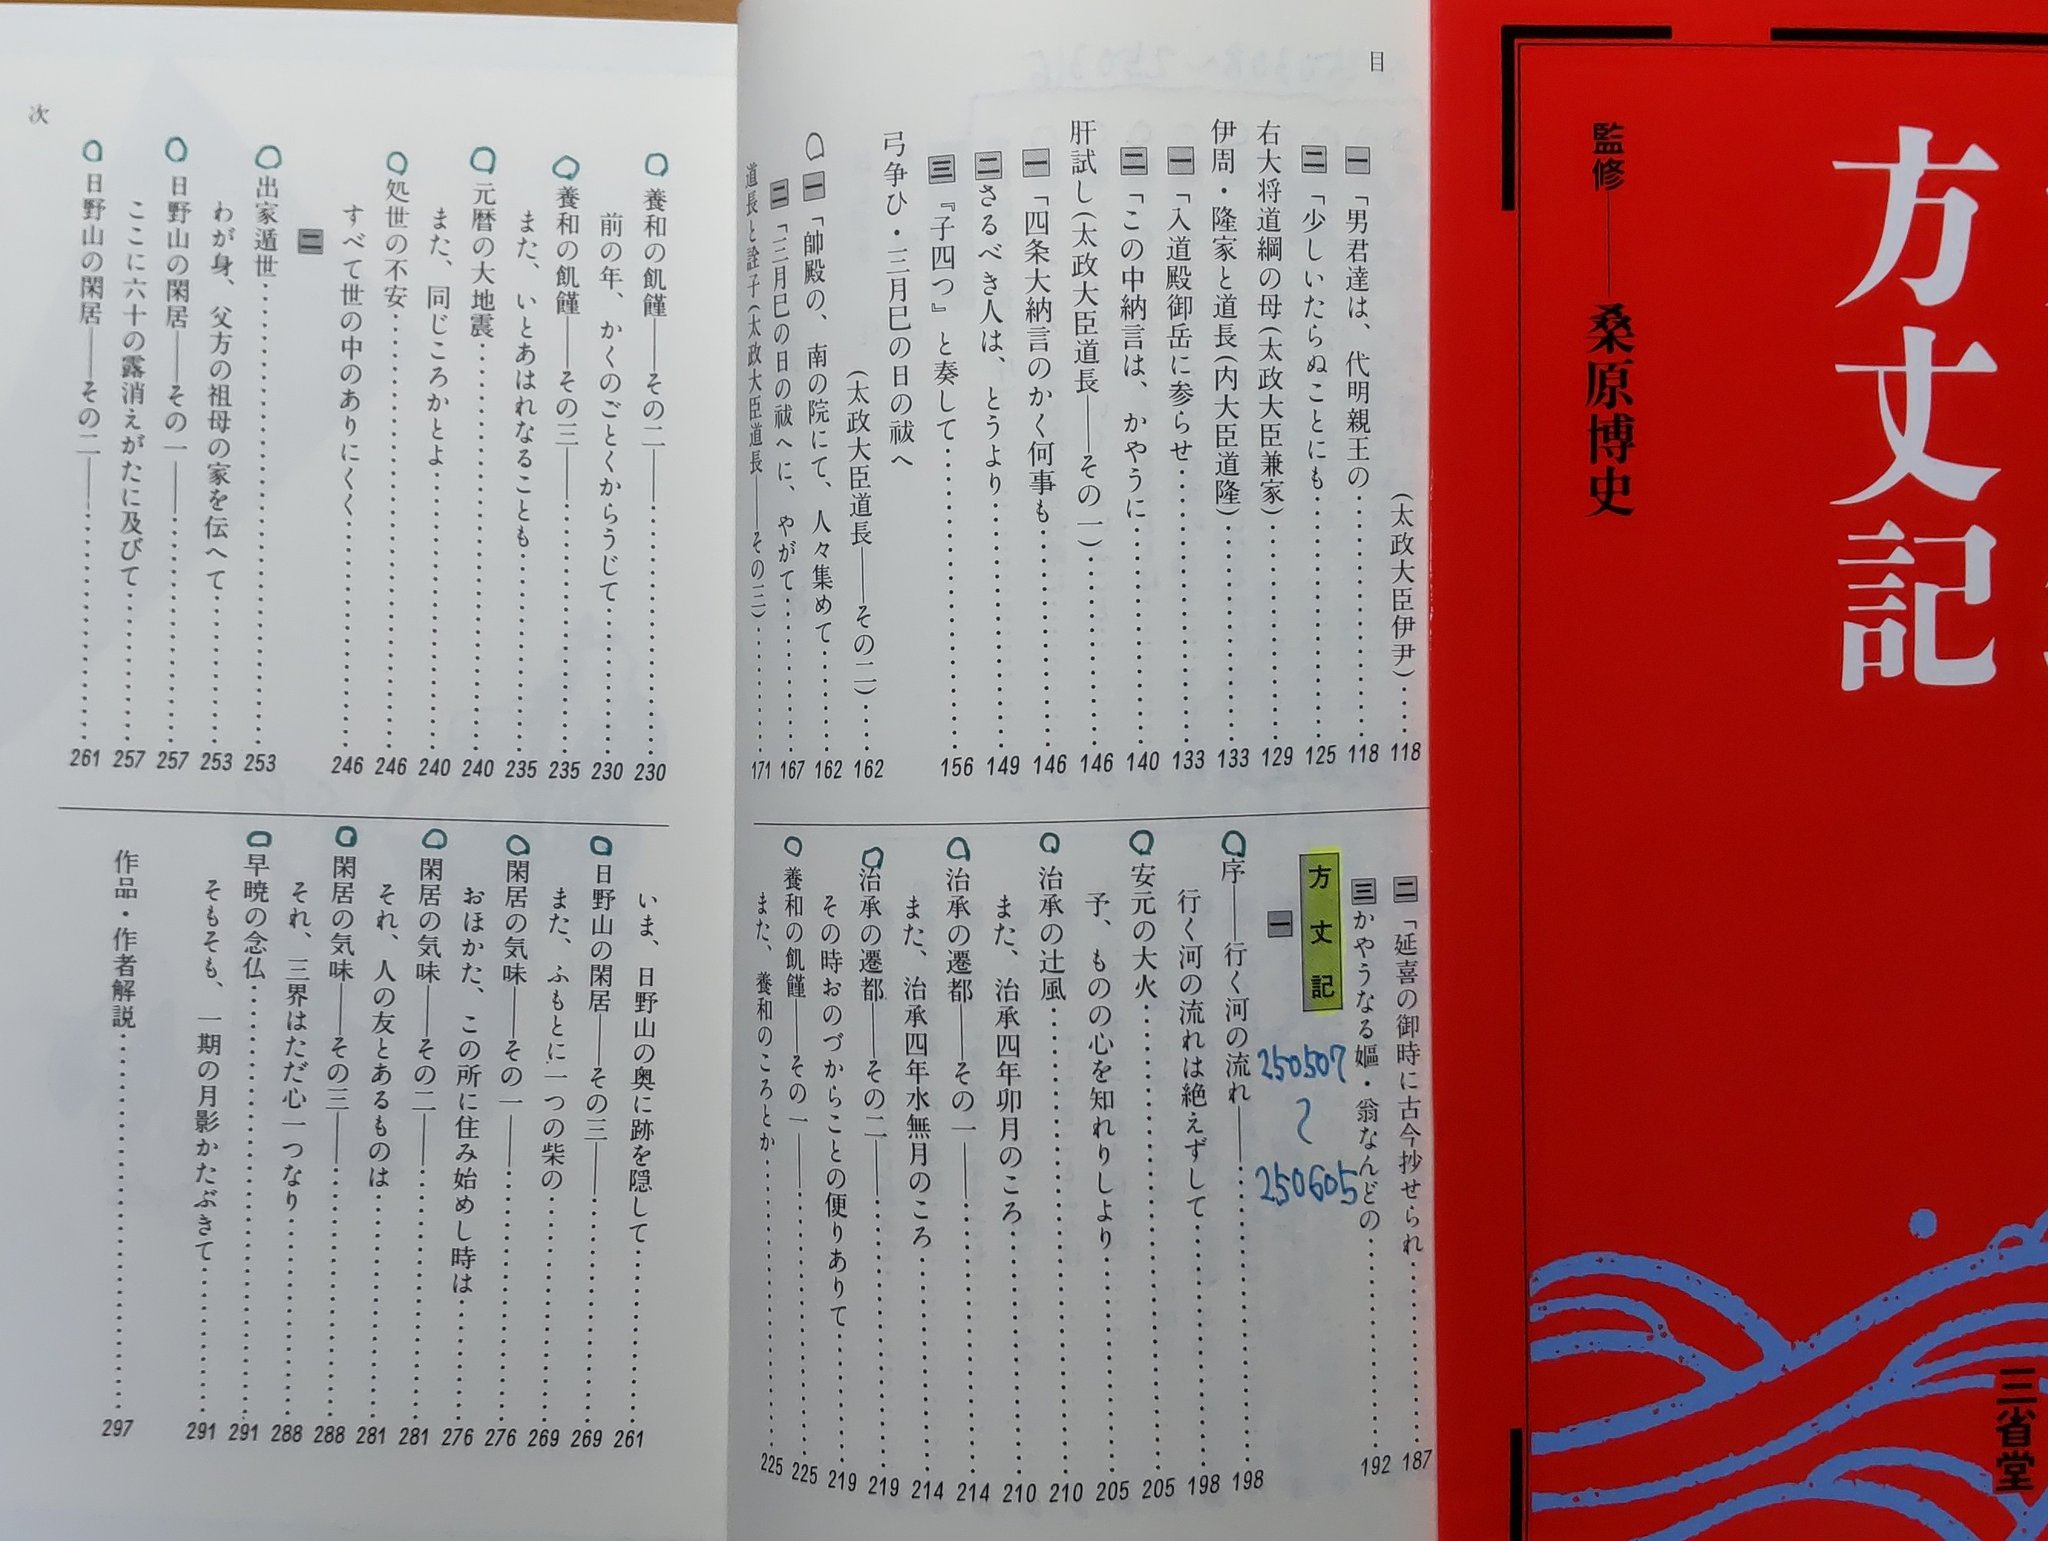 方丈記
監修――桑原博史
三省堂
目
(太政大臣伊尹)………118
一「男君達は、代明親王の………118
二「少しいたらぬことにも………125
右大将道綱の母(太政大臣兼家)………129
伊周・隆家と道長(内大臣道隆)………133
一「入道殿御岳に参らせ………133
二「この中納言は、かやうに………140
肝試し(太政大臣道長――その一)………146
一「四条大納言のかく何事も………146
二さるべき人は、とうより………149
三『子四つ』と奏して………156
弓争ひ・三月巳の日の祓へ
(太政大臣道長――その二)………162
一「帥殿の、南の院にて、人々集めて………162
二「三月巳の日の祓へに、やがて………167
道長と詮子(太政大臣道長――その三)………171
二「延喜の御時に古今抄せられ………187
三かやうなる嫗・翁なんどの………192
方丈記
250507
〜
250605
一
序――行く河の流れ――………198
行く河の流れは絶えずして………198
安元の大火………205
予、ものの心を知れりしより………205
治承の辻風………210
また、治承四年卯月のころ………210
治承の遷都――その一――………214
また、治承四年水無月のころ………214
治承の遷都――その二――………219
その時おのづからことの便りありて………219
養和の飢饉――その一――………225
また、養和のころとか………225
次
養和の飢饉――その二――………230
前の年、かくのごとくからうじて………230
養和の飢饉――その三――………235
また、いとあはれなることも………235
元暦の大地震………240
また、同じころかとよ………240
処世の不安………246
すべて世の中のありにくく………246
二
出家遁世………253
わが身、父方の祖母の家を伝へて………253
日野山の閑居――その一――………257
ここに六十の露消えがたに及びて………257
日野山の閑居――その二――………261
いま、日野山の奥に跡を隠して………261
日野山の閑居――その三――………269
また、ふもとに一つの柴の………269
閑居の気味――その一――………276
おほかた、この所に住み始めし時は………276
閑居の気味――その二――………281
それ、人の友とあるものは………281
閑居の気味――その三――………288
それ、三界はただ心一つなり………288
早暁の念仏………291
そもそも、一期の月影かたぶきて………291
作品・作者解説………297